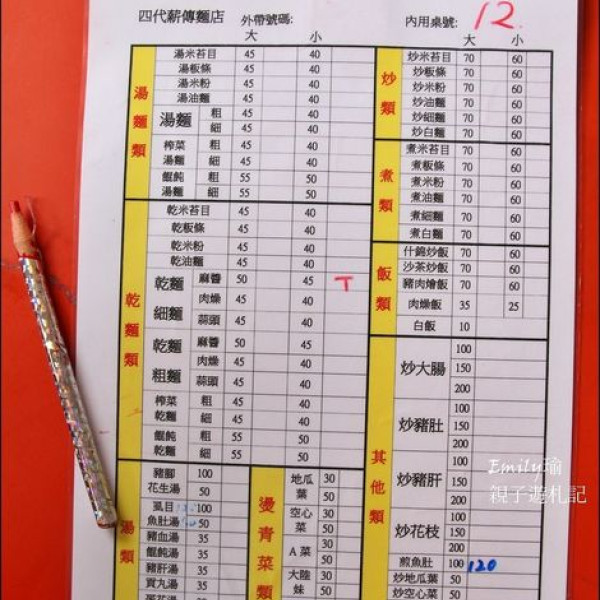 四代薪傳麵店 外帶號碼: 內用桌號: 12.
大 小
湯麵類
湯米苔目 45 40
湯粄條 45 40
湯米粉 45 40
湯油麵 45 40
湯麵 粗 45 40
細 45 40
榨菜湯麵 粗 45 40
細 45 40
餛飩湯麵 粗 55 50
細 55 50
乾麵類
乾米苔目 45 40
乾粄條 45 40
乾米粉 45 40
乾油麵 45 40
乾麵細麵 麻醬 50 45 T
肉燥 45 40
蒜頭 45 40
乾麵粗麵 麻醬 50 45
肉燥 45 40
蒜頭 45 40
榨菜乾麵 粗 45 40
細 45 40
餛飩乾麵 粗 55 50
細 55 50
湯類
豬腳花生湯 100
50
虱目魚肚湯 100
50
豬血湯 35
餛飩湯 35
豬肝湯 35
貢丸湯 35
燙青菜類
地瓜葉 30
50
空心菜 30
50
A菜 30
50
大陸妹 30
50
大 小
炒類
炒米苔目 70 60
炒粄條 70 60
炒米粉 70 60
炒油麵 70 60
炒細麵 70 60
炒白麵 70 60
煮類
煮米苔目 70 60
煮粄條 70 60
煮米粉 70 60
煮油麵 70 60
煮細麵 70 60
煮白麵 70 60
飯類
什錦炒飯 70 60
沙茶炒飯 70 60
豬肉燴飯 70 60
肉燥飯 35 25
白飯 10
其他類
炒大腸 100
150
200
炒豬肚 100
150
200
炒豬肝 100
150
200
炒花枝 100
150
200
煎魚肚 100 120
炒地瓜葉 50
炒空心菜 50
Emily瑜
親子遊札記